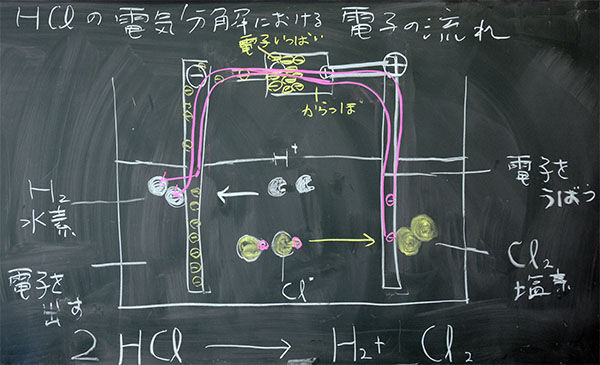 HClの電気分解における電子の流れ
電子いっぱい
⊖
⊕
からっぽ
H⁺
H₂
水素
電子を
うばう
電子を
出す
Cl⁻
Cl₂
塩素
2HCl → H₂ + Cl₂